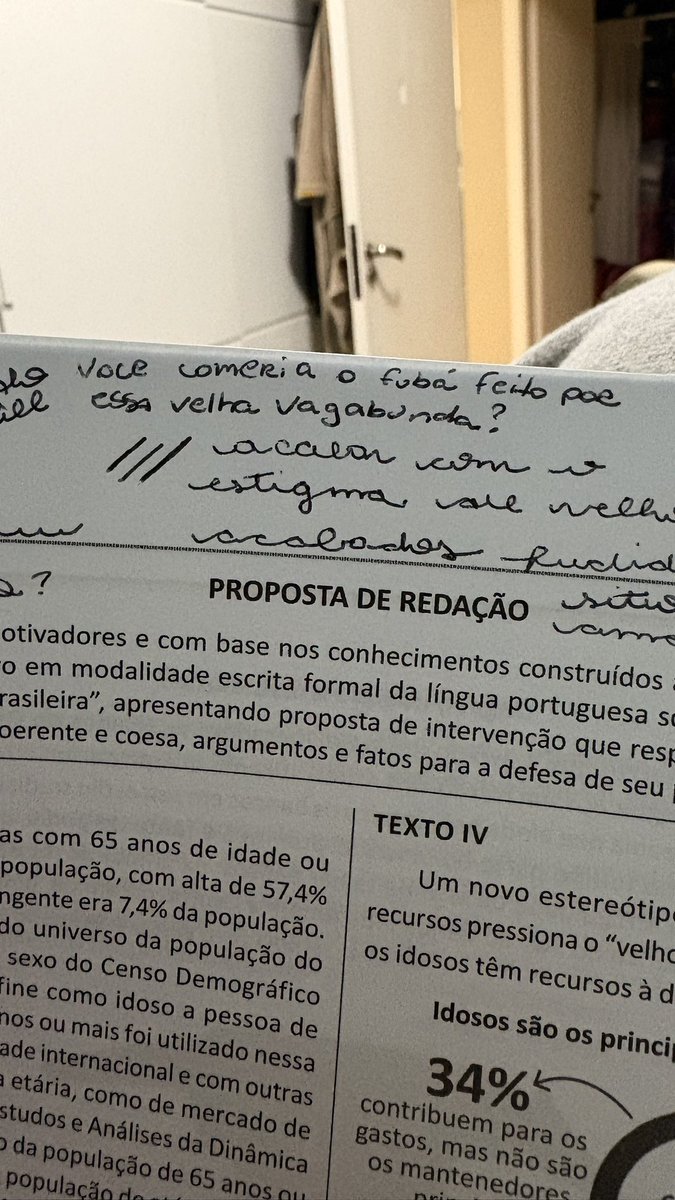 voce comeria o fubá feito poe
essa velha vagabunda?
/// acabar com o
estigma de velho
acabados fudid
?
PROPOSTA DE REDAÇÃO
otivadores e com base nos conhecimentos construídos
o em modalidade escrita formal da língua portuguesa so
rasileira”, apresentando proposta de intervenção que resp
oerente e coesa, argumentos e fatos para a defesa de seu
as com 65 anos de idade ou
população, com alta de 57,4%
ngente era 7,4% da população.
do universo da população do
sexo do Censo Demográfico
fine como idoso a pessoa de
nos ou mais foi utilizado nessa
ade internacional e com outras
a etária, como de mercado de
studos e Análises da Dinâmica
o da população de 65 anos ou
população de
TEXTO IV
Um novo estereótipo
recursos pressiona o “velho
os idosos têm recursos à d
Idosos são os princip
34%
contribuem para os
gastos, mas não são
os mantenedores